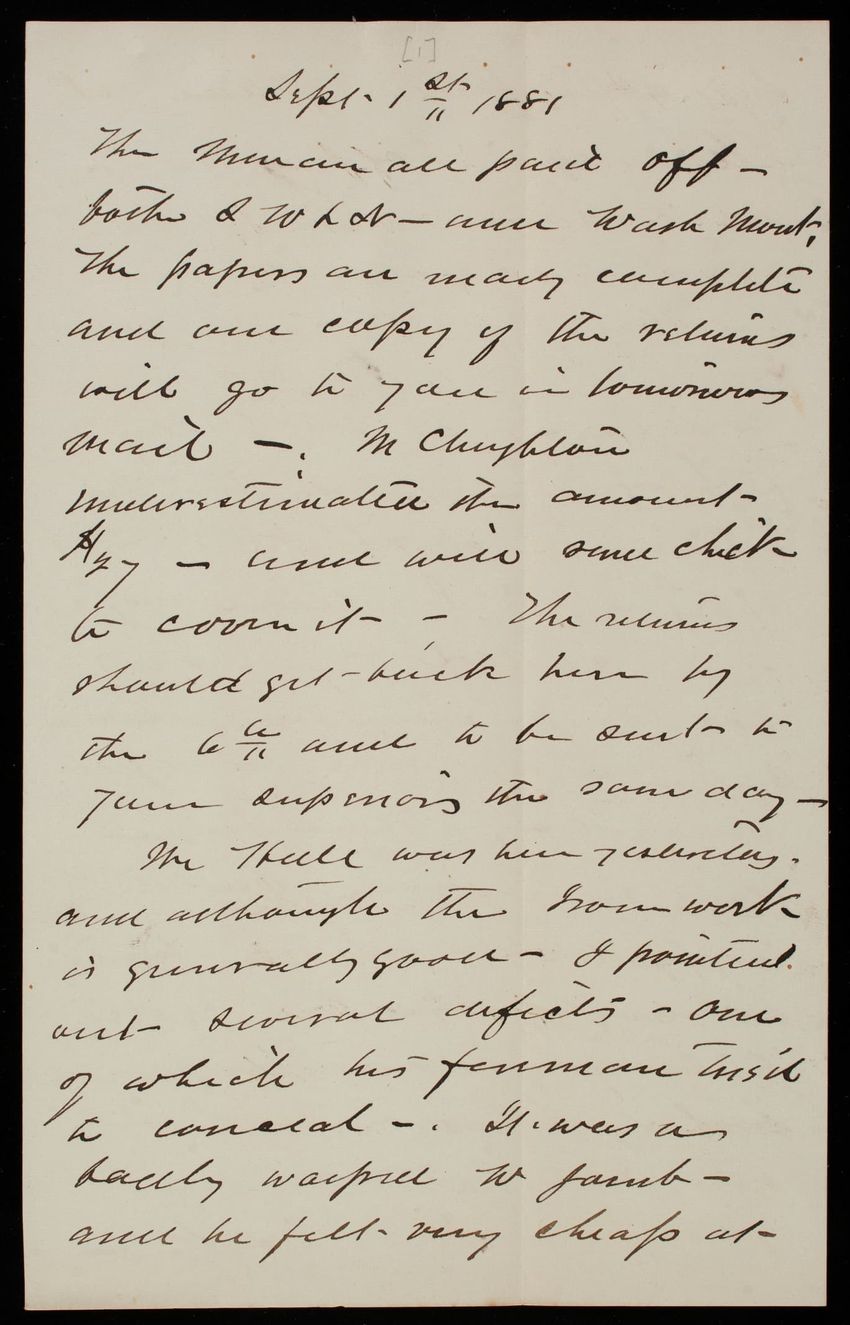 [1]
Sept. 1st 1881
The men are all paid off -
both S W & N - and Wash Mont.
The papers are nearly complete
and one copy of the returns
will go to you in tomorrows
mail -.
underestimated the amount
- and will send check
to cover it - - The returns
should get back here by
the 6th and to be sent to
your superiors the same day -
Mr Hull was here yesterday.
and although the Iron work
is generally good - I pointed
out several defects - One
of which his foreman tried
to conceal -. It was a
badly warped W Jamb -
and he felt very cheap at